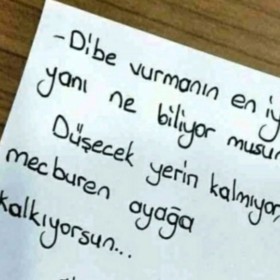 -Dibe vurmanın en iy
yanı ne biliyor musun
Düşecek yerin kalmıyor,
mecburen ayağa
kalkıyorsun...